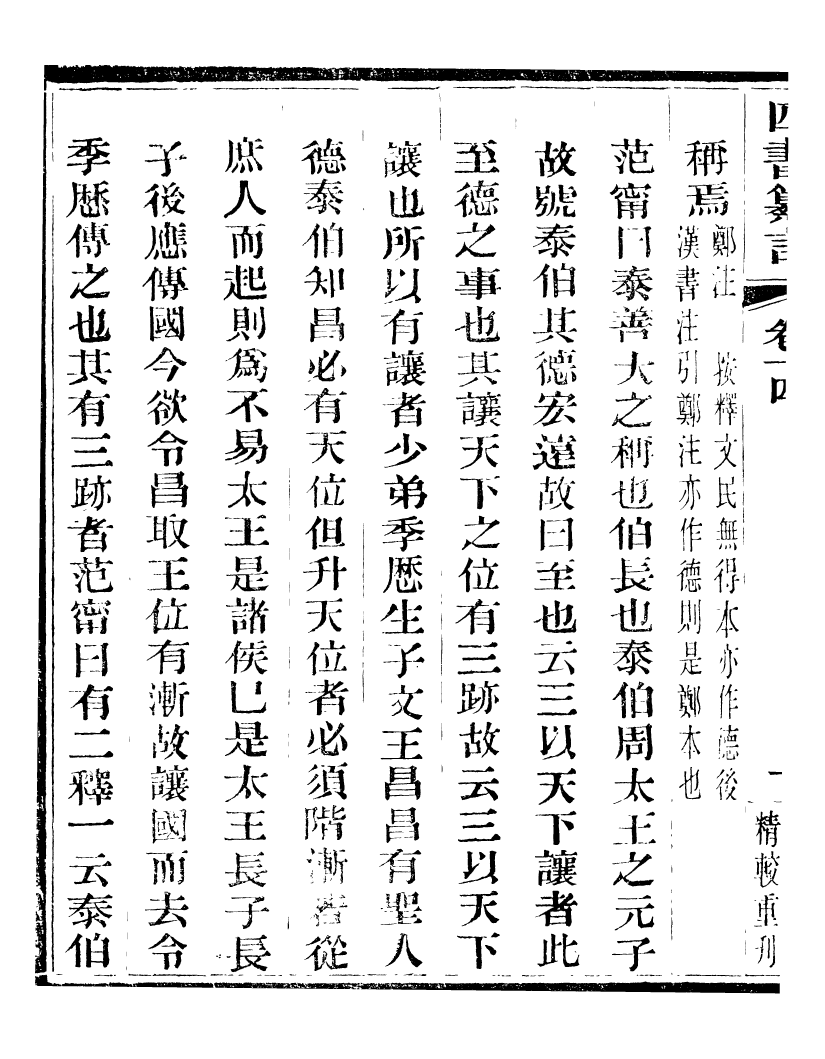 四書纂言 卷十四 一 精較重刋
稱焉 鄭注 按釋文民無得本亦作德後
漢書注引鄭注亦作德則是鄭本也
范甯曰泰善大之稱也伯長也泰伯周太王之元子
故號泰伯其德宏遠故曰至也云三以天下讓者此
至德之事也其讓天下之位有三跡故云三以天下
讓也所以有讓者少弟季歷生子文王昌昌有聖人
德泰伯知昌必有天位但升天位者必須階漸若從
庶人而起則爲不易太王是諸侯已是太王長子長
子後應傳國今欲令昌取王位有漸故讓國而去令
季歷傳之也其有三跡者范甯曰有二釋一云泰伯